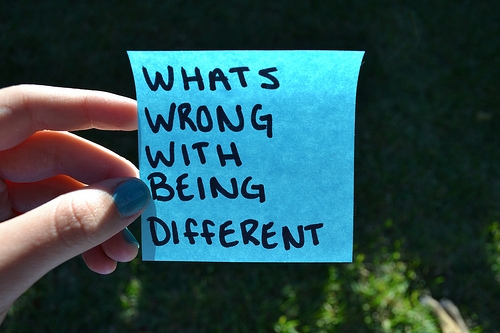 WHATS
WRONG
WITH
BEING
DIFFERENT